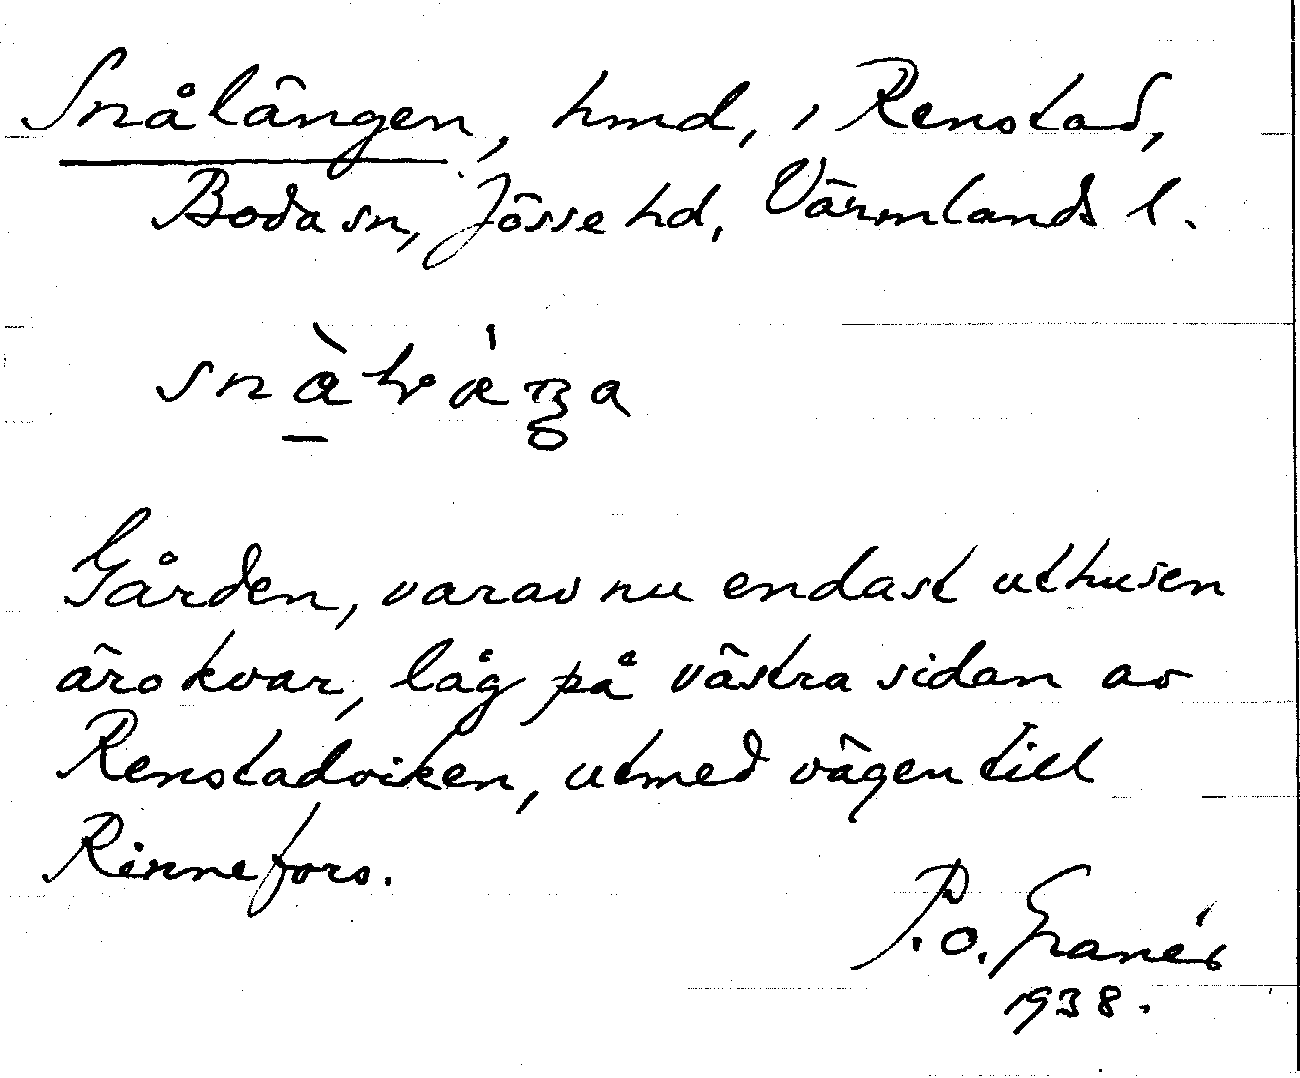 Snålängen, hmd, i Renstad,
Boda sn, Jösse hd, Värmlands l.
Gården, varav nu endast uthusen
äro kvar, låg på västra sidan av
Renstadviken, utmed vägen till
Rinnefors.
P.O. Granér
1938.